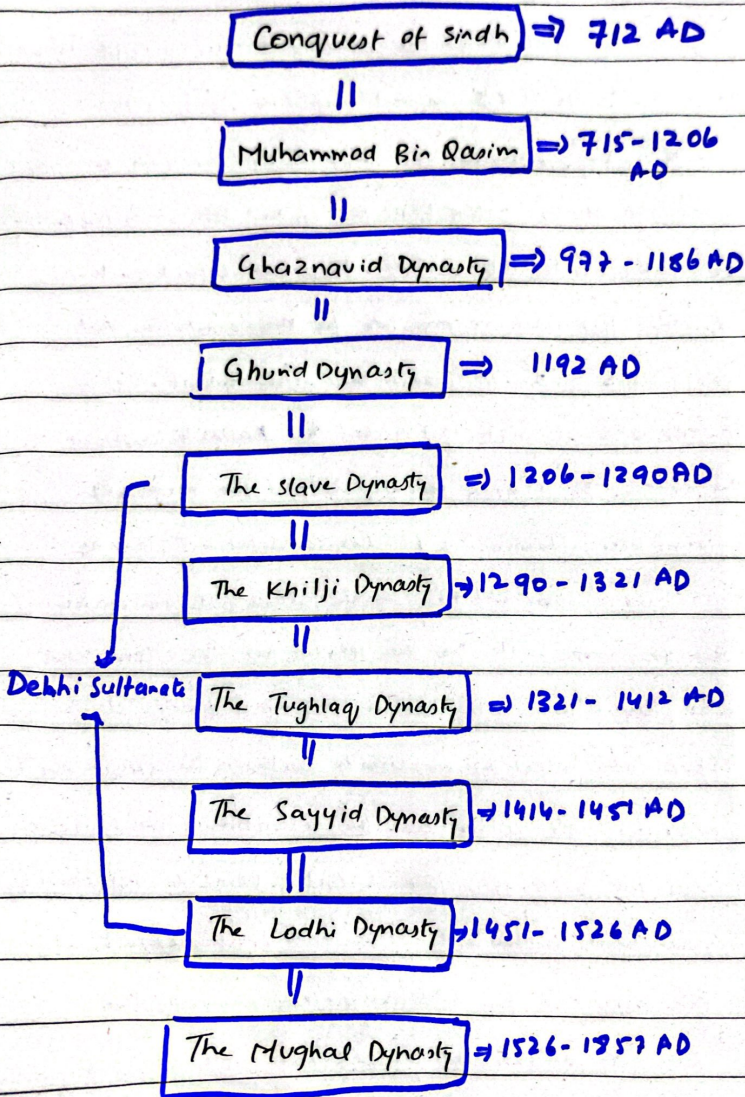 Conquest of Sindh ⇒ 712 AD
||
Muhammad Bin Qasim ⇒ 715-1206
AD
||
Ghaznavid Dynasty ⇒ 977-1186 AD
||
Ghurid Dynasty ⇒ 1192 AD
||
The slave Dynasty ⇒ 1206-1290 AD
||
The Khilji Dynasty → 1290-1321 AD
||
Delhi Sultanate
The Tughlaq Dynasty ⇒ 1321-1412 AD
||
The Sayyid Dynasty ⇒ 1414-1451 AD
||
The Lodhi Dynasty → 1451-1526 AD
||
The Mughal Dynasty ⇒ 1526-1857 AD